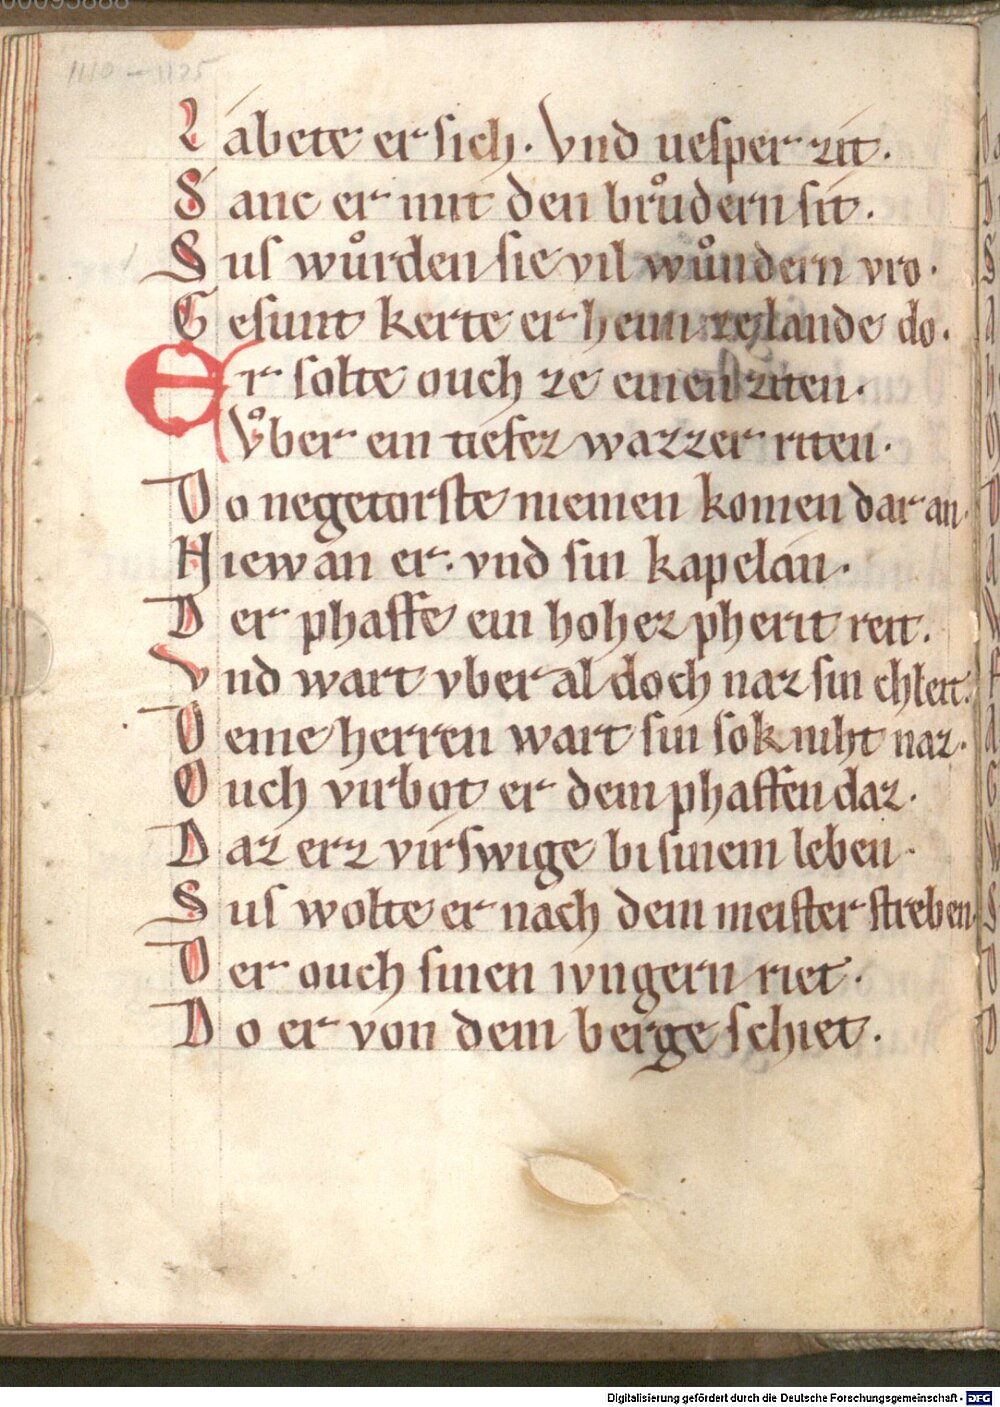 00095888
1110–1125
Labete er sich. Vnd uesper zit.
Sanc er mit den brůdern sit.
Sus wůrden sie vil wůndern vro.
Gesunt kerte er heim ze lande do.
Er solte ouch ze einen ziten.
Vͦber ein tiefez wazzer riten.
Do negetorste niemen komen dar an.
Hiewan er. vnd sin kapelan.
Der phaffe ein hohez pherit reit.
Vnd wart vber al doch naz sin chleit.
Deme herren wart sin sok niht naz.
Ouch virbot er dem phaffen daz.
Daz erz virswige bi sinem leben.
Sus wolte er nach dem meister streben.
Der ouch sinen ivngern riet.
Do er von dem berge schiet.
Digitalisierung gefördert durch die Deutsche Forschungsgemeinschaft - DFG